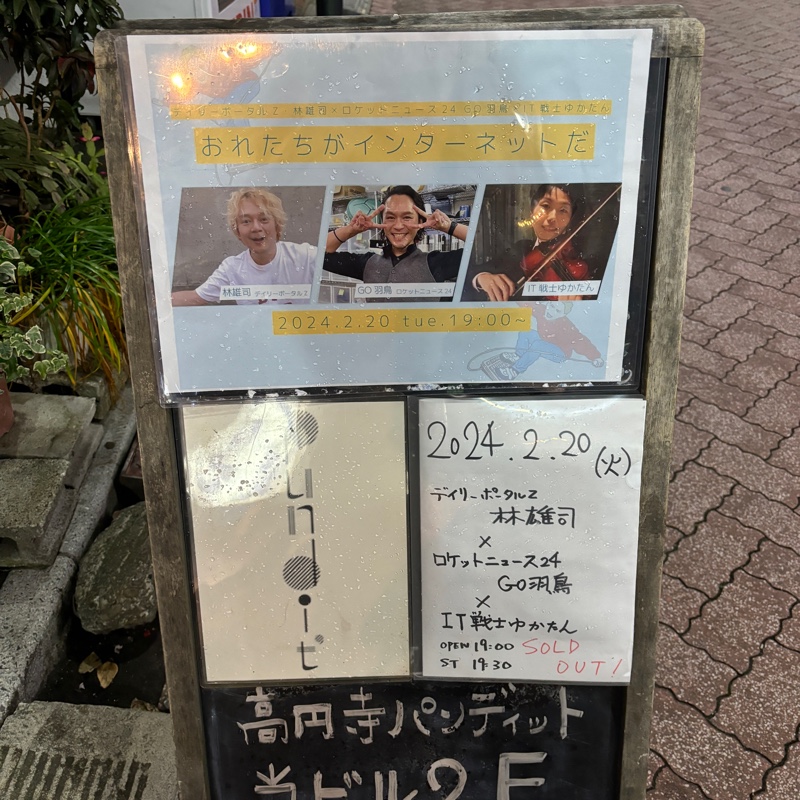 デイリーポータルZ 林雄司×ロケットニュース24 GO羽鳥×IT戦士ゆかたん
おれたちがインターネットだ
林雄司 デイリーポータルZ
GO羽鳥 ロケットニュース24
IT戦士ゆかたん
2024.2.20 tue.19:00~
pundit'
2024.2.20(火)
デイリーポータルZ
林雄司
×
ロケットニュース24
GO羽鳥
×
IT戦士ゆかたん
OPEN 19:00 SOLD
ST 19:30 OUT!
高円寺パンディット
当ビル2F